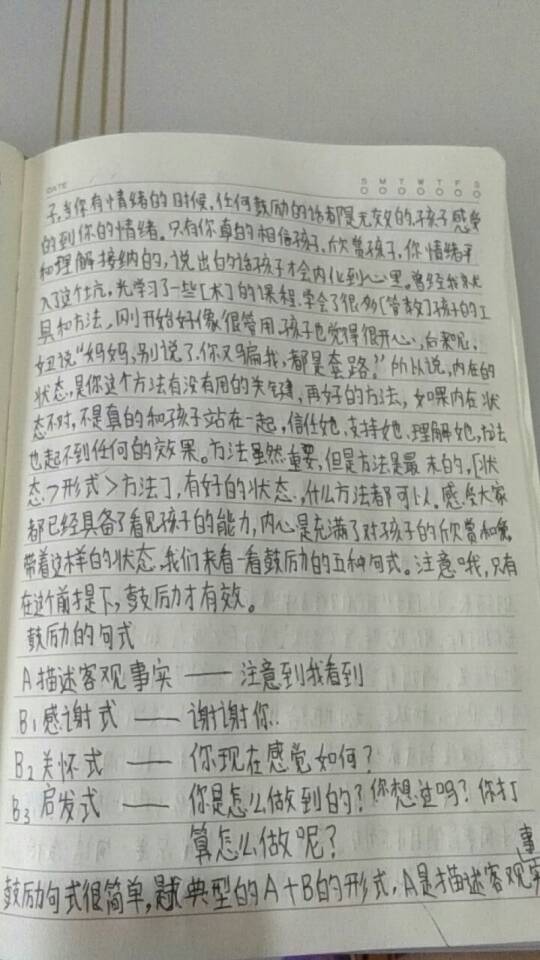 DATE
S M T W T F S
子，当你有情绪的时候，任何鼓励的话都是无效的，孩子感受
的到你的情绪。只有你真的相信孩子，欣赏孩子，你情绪平
和理解接纳的，说出的话孩子才会内化到心里。曾经我就
入了这个坑，光学习了一些[术]的课程，学会了很多[管教]孩子的工
具和方法，刚开始好像很管用，孩子也觉得很开心，后来呢，
妞说“妈妈，别说了，你又骗我，都是套路。”所以说，内在的
状态，是你这个方法有没有用的关键，再好的方法，如果内在状
态不对，不是真的和孩子站在一起，信任她，支持她，理解她，方法
也起不到任何的效果。方法虽然重要，但是方法是最末的，[状
态>形式>方法]，有好的状态，什么方法都可以。感受大家
都已经具备了看见孩子的能力，内心是充满了对孩子的欣赏和爱
带着这样的状态，我们来看一看鼓励的五种句式。注意哦，只有
在这个前提下，鼓励才有效。
鼓励的句式
A描述客观事实 —— 注意到我看到
B1感谢式 —— 谢谢你..
B2关怀式 —— 你现在感觉如何？
B3启发式 —— 你是怎么做到的？你想过吗？你打
算怎么做呢？
鼓励句式很简单，典型的A+B的形式，A是描述客观事实